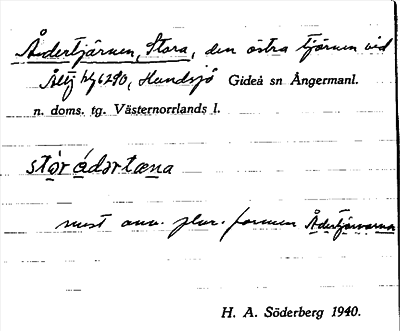 Ådertjärnen, Stora, den östra tjärnen vid
hg 6290, Hundsjö Gideå sn Ångermanl.
n. doms. tg. Västernorrlands l.
stòr ádərtæna
mest anv. plur. formen Ådertjärnarna
H. A. Söderberg 1940.